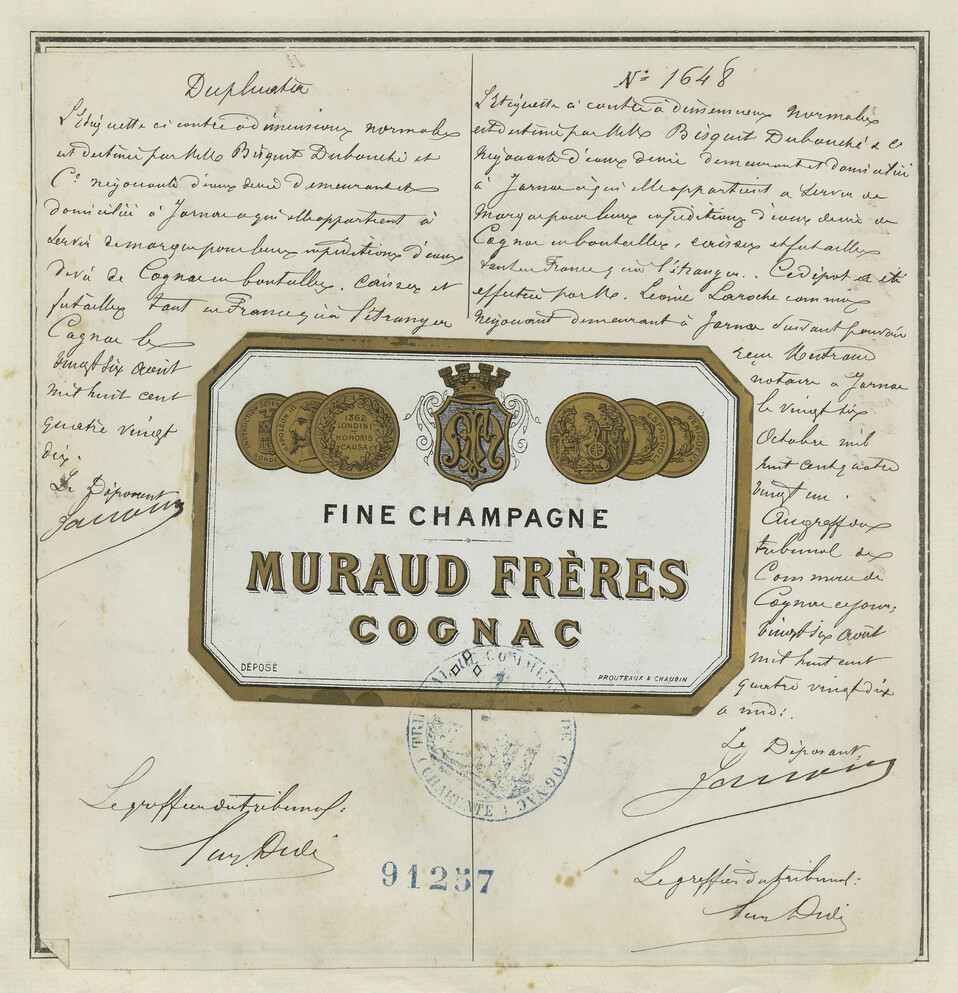 Duplicata
L'étiquette ci contre à dimensions normales
est destinée par MMrs Bisquit Dubouché et
Cie négociants d'eaux de vie demeurant et
domiciliés à Jarnac à qui elle appartient à
servir de marque pour leurs expéditions d'eaux
de vie de Cognac en bouteilles, caisses et
futailles tant en France qu'à l'étranger
Cognac le
vingt six août
mil huit cent
quatre vingt
dix.
Le Déposant
No 1648
L'étiquette ci contre à dimensions normales
est destinée par MMrs Bisquit Dubouché & Cie
négociants d'eaux de vie demeurant et domiciliés
à Jarnac à qui elle appartient à servir de
marque pour leurs expéditions d'eaux de vie de
Cognac en bouteilles, caisses et futailles
tant en France qu'à l'étranger. Ce dépôt a été
effectué par M. Léonie Laroche commis
négociant demeurant à Jarnac suivant pouvoir
reçu
notaire à Jarnac
le vingt six
Octobre mil
huit cent quatre
vingt un.
Au greffe du
tribunal de
Commerce de
Cognac ce jour;
vingt six août
mil huit cent
quatre vingt dix
à midi.
Le Déposant
NAPOLEON III
1862
LONDINI
HONORIS
CAUSA
FINE CHAMPAGNE
MURAUD FRÈRES
COGNAC
DÉPOSÉ
PROUTEAUX & CHAUBIN
TRIBUNAL DE COMMERCE DE COGNAC
(CHARENTE)
Le greffier du tribunal:
91257
Le greffier du tribunal: